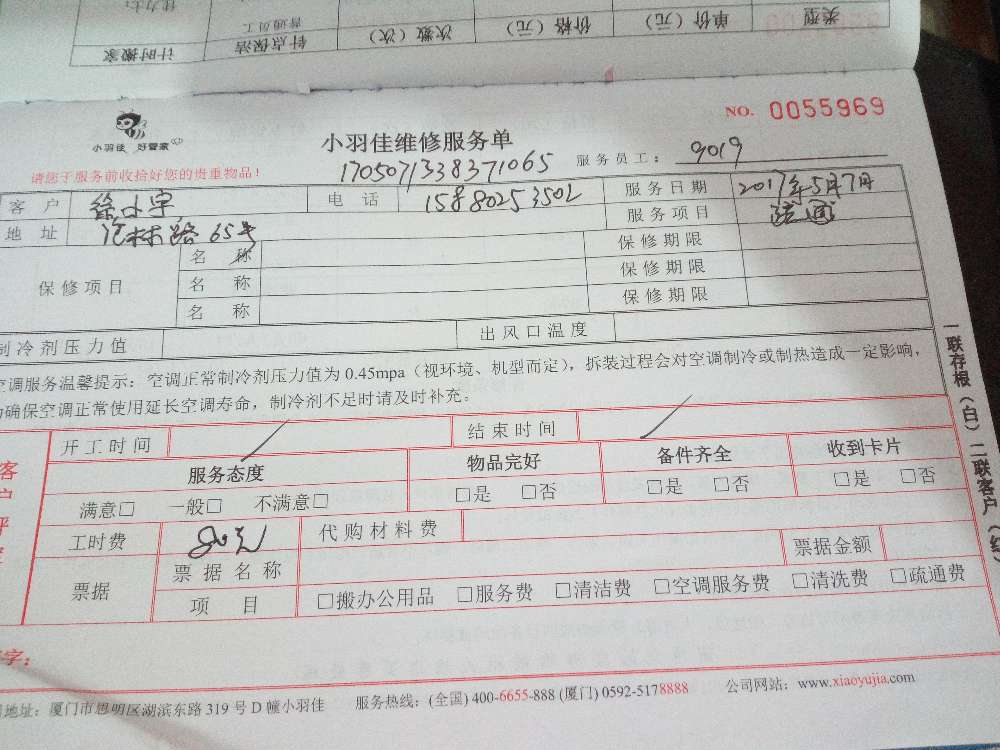 计时搬家 针点保洁 次数（次） 价格（元） 单价（元） 类型
普通员工
NO. 0055969
小羽佳 好管家
小羽佳维修服务单
请您于服务前收拾好您的贵重物品！
1705071338371065
服务员工： 9019
客户 徐小宇 电话 15880253502 服务日期 2017年5月7日
地址 65号 服务项目 疏通
保修项目 名称 保修期限
名称 保修期限
名称 保修期限
制冷剂压力值 出风口温度
空调服务温馨提示：空调正常制冷剂压力值为 0.45mpa（视环境、机型而定），拆装过程会对空调制冷或制热造成一定影响，
为确保空调正常使用延长空调寿命，制冷剂不足时请及时补充。
开工时间 结束时间
服务态度 物品完好 备件齐全 收到卡片
满意□ 一般□ 不满意□ □是 □否 □是 □否 □是 □否
工时费 80元 代购材料费
票据 票据名称 票据金额
项目 □搬办公用品 □服务费 □清洁费 □空调服务费 □清洗费 □疏通费
客户评
字：
地址：厦门市思明区湖滨东路 319 号 D 幢小羽佳 服务热线：(全国) 400-6655-888 (厦门) 0592-5178888 公司网站：www.xiaoyujia.com
一联存根（白）二联客户（红）